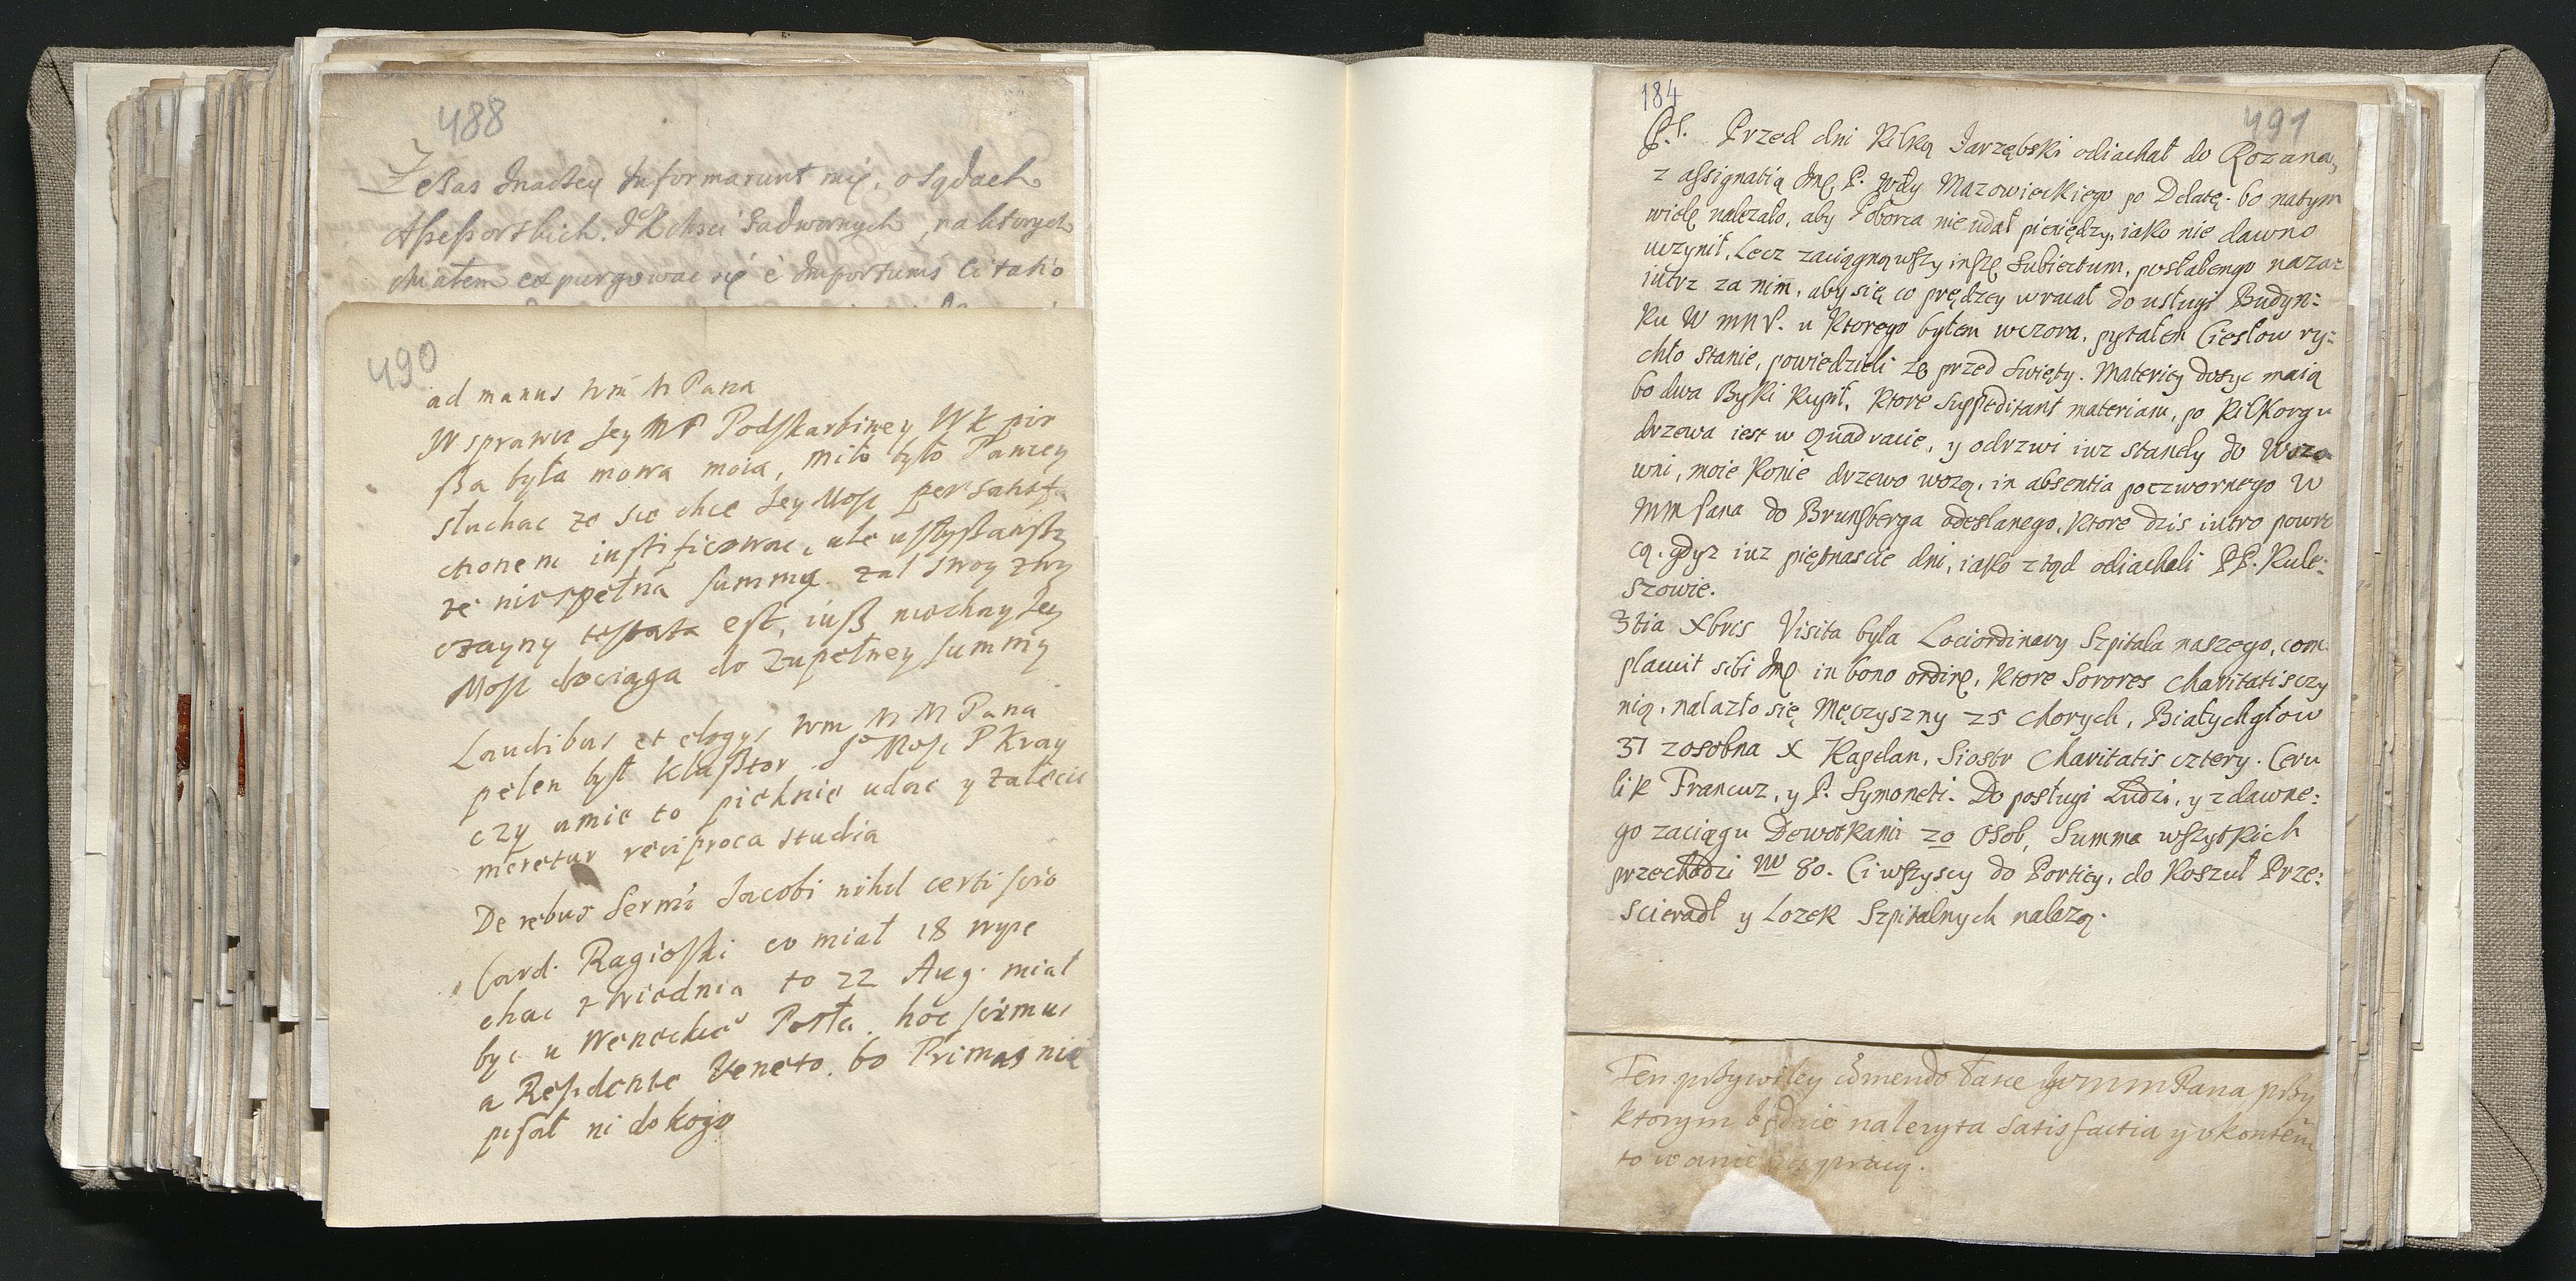 488
Zesas Inaczey Informarunt mię, o Sądach
Assessorskich. I Kchsci Sadwornych, na ktorych
chiałem expurgowac się è Importunis Citatio
490
ad manus Wm M Pana
W sprawie Jey MP Podskarbiney WK pir
ßa była mowa moia, miło było Paniey
słuchac ze sie chce Jey Mość per Satisf
ctionem iustificowac, ale usłyßawszy
ze niezpełna summa zal swoy zwy
czayny testata est, iuß niechay Jey
Mość dociąga do zupełney summy
Laudibus et elogys Wm M M Pana
pełen był Klaßtor Jo Mość P Kray
czy umie to pieknie udac y zalecic
meretur reciproca studia
De rebus Sermi Jacobi nihil certi scio
Card. Ragioski co miał 18 wyie
chac z Wiednia to 22 Aug. miał
byc u Weneckiego Posła. hoc scimus
a Residente Veneto. bo Primas nie
pisał ni do kogo
184
491
PS. Przed dni kilką Jarzębski odiachał do Rozana,
z assignatią Jme P. Wdy Mazowieckiego po Delatę. bo natym
wielę nalezało, aby Poborca nie udał pieniędzy, iako nie dawno
uczynił. Lecz zaciągnąwszy inszę Subiectum, posłałemgo naza:
iutrz za nim, aby się co prędzey wracał do usługi Budyn:
ku W mnP. u ktorego byłem wczora, pytałem Cieslow ry:
chło stanie, powiedzieli ze przed Swięty. Materiey dosyc maią
bo dwa Byki kupił, ktore suppeditant materiam, po kilkorgu
drzewa iest w Quadracie, y odrzwi iuz staneły do Wozo
wni, moie konie drzewo wozą, in absentia poczwornego W
mm Pana do Brunsberga odesłanego, ktore dzis iutro powro
cą. gdyz iuz piętnascie dni, iako ztąd odiachali PP. Kule:
szowie.
3tia Xbris Visita była Lociordinary Szpitala naszego, com
placuit sibi Jmę in bono ordine, ktore Sorores Charitatis czy
nią, nalazło się Męczyszny 25 chorych, Białychgłow
31 zosobna X Kapelan, Siostr Charitatis cztery. Ceru
lik Francuz, y P. Symoneti. Do posługi Ludzi, y zdawne:
go zaciągu Dewotkami 20 Osob, Summa wszytkich
przechodzi nro 80. Ci wszyscy do Portiey, do Koszul Prze:
scieradł y Lozek Szpitalnych nalezą.
Ten przywiley comendo Łasce Wmm Pana przy
ktorym będzie nalezyta Satisfactia y vkonten
towanie pracy.